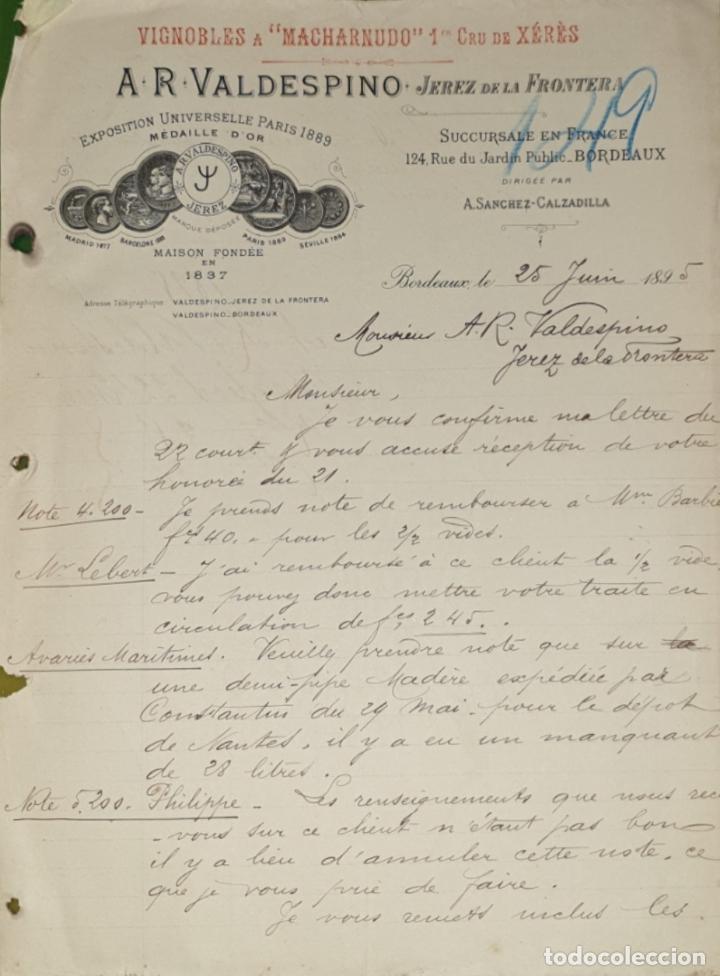 VIGNOBLES A "MACHARNUDO" 1er CRU DE XÉRÈS
A·R·VALDESPINO· JEREZ DE LA FRONTERA
1219
EXPOSITION UNIVERSELLE PARIS 1889
MÉDAILLE D'OR
A.R.VALDESPINO
JEREZ
MARQUE DÉPOSÉE
MADRID 1877 BARCELONE 1888 PARIS 1889 SÉVILLE 1884
MAISON FONDÉE
EN
1837
SUCCURSALE EN FRANCE
124, Rue du Jardin Public_BORDEAUX
DIRIGÉE PAR
A. SANCHEZ-CALZADILLA
Adresse Télégraphique VALDESPINO_JEREZ DE LA FRONTERA
VALDESPINO_BORDEAUX
Bordeaux, le 25 Juin 1895
Monsieur A. R. Valdespino
Jerez de la Frontera
Monsieur,
Je vous confirme ma lettre du
22 court. & vous accuse réception de votre
honorée du 21.
Note 4.200 - Je prends note de rembourser à Mme Barbie
fcs 40. - pour les 2/2 vides.
Mr Lebert - J'ai remboursé à ce client la 1/2 vide,
vous pouvez donc mettre votre traite en
circulation de fcs 245.
Avaries Maritimes. Veuillez prendre note que sur la
une demi-pipe Madère expédiée par
Constantin du 29 Mai pour le dépôt
de Nantes, il y a eu un manquant
de 28 litres.
Note 5.200. Philippe - Les renseignements que nous rece
-vous sur ce client n'étant pas bons
il y a lieu d'annuler cette note, ce
que je vous prie de faire.
Je vous remets inclus les
todocoleccion